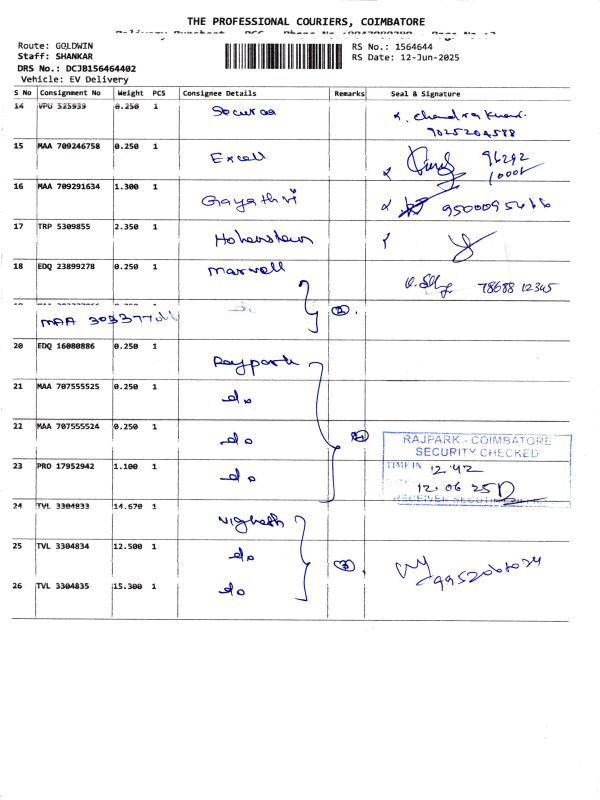 THE PROFESSIONAL COURIERS, COIMBATORE
Route: GOLDWIN
RS No.: 1564644
Staff: SHANKAR
RS Date: 12-Jun-2025
DRS No.: DCJB156464402
Vehicle: EV Delivery
S No Consignment No Weight PCS Consignee Details Remarks Seal & Signature
14 VPU 525939 0.250 1
9025204588
15 MAA 709246758 0.250 1 Excell
16 MAA 709291634 1.300 1 Gayathri
17 TRP 5309855 2.350 1
18 EDQ 23899278 0.250 1 Maxwell 78688 12345
20 EDQ 16080886 0.250 1
21 MAA 707555525 0.250 1 do
22 MAA 707555524 0.250 1 do
RAJPARK - COIMBATORE
SECURITY CHECKED
23 PRO 17952942 1.100 1 do
TIME IN 12.42
12.06.25
24 TVL 3304833 14.670 1 Vighesh
25 TVL 3304834 12.500 1 do
26 TVL 3304835 15.300 1 do